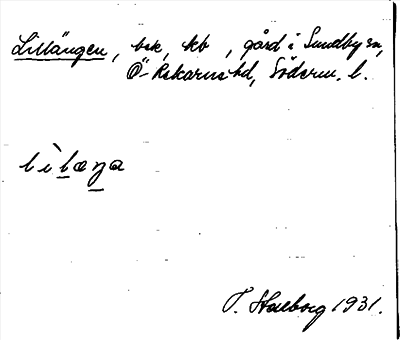 Lillängen, bsk, kb, gård i Sundby sn,
Ö-Rekarne hd, Söderm. l.
lìlæŋa
T. Stalborg 1931.